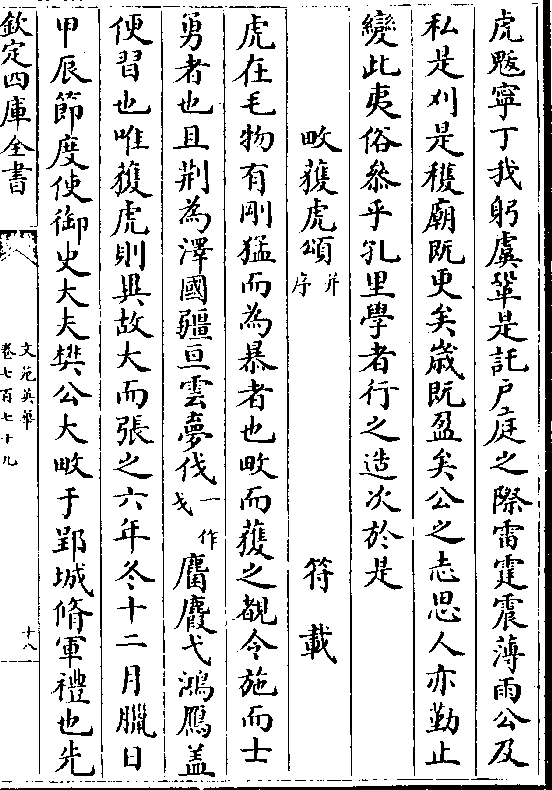 虎踆寧丁我躬虞鞏是託戶庭之際雷霆震薄雨公及
私是刈是穫廟既更矣歲既盈矣公之志思人亦勤止
變此夷俗叅乎孔里學者行之造次於是
畋獲虎頌并序 符載
虎在毛物有剛猛而為暴者也畋而獲之覩令施而士
勇者也且荆為澤國疆亘雲夢伐一作戈麕麚弋鴻鴈盖
便習也唯獲虎則異故大而張之六年冬十二月臘日
甲辰節度使御史大夫樊公大畋于郢城脩軍禮也先
欽定四庫全書
文苑英華
卷七百七十九
十八